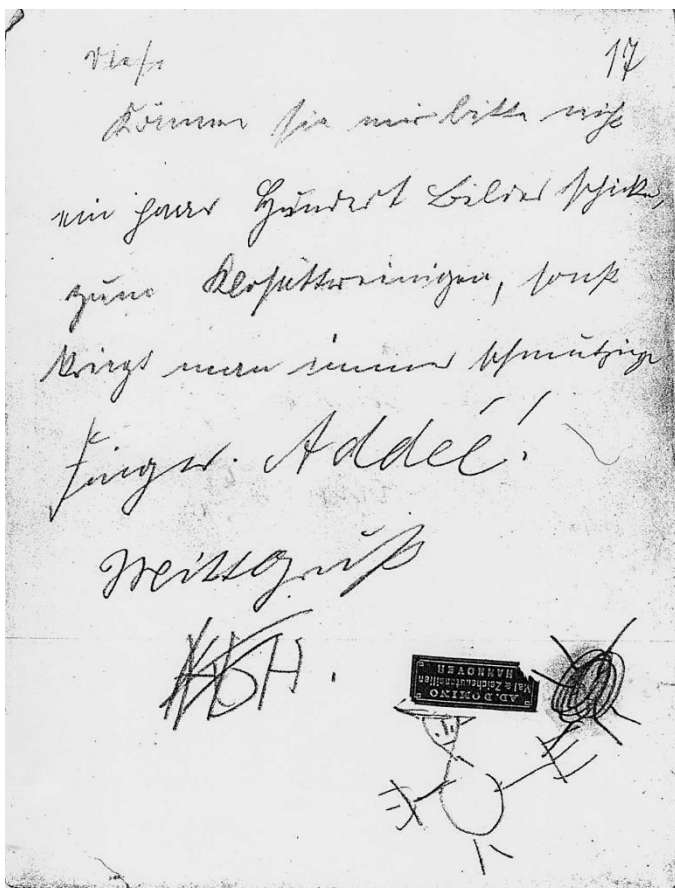 17
Können sie mir bitte nich
ein paar Hundert Bilder schicke,
zum Klosettreinigen, sonst
kriegt man immer schmutzige
Finger. Addeé!
H.
AD. DOMINO
Mal & Zeichenutensilien
HANNOVER